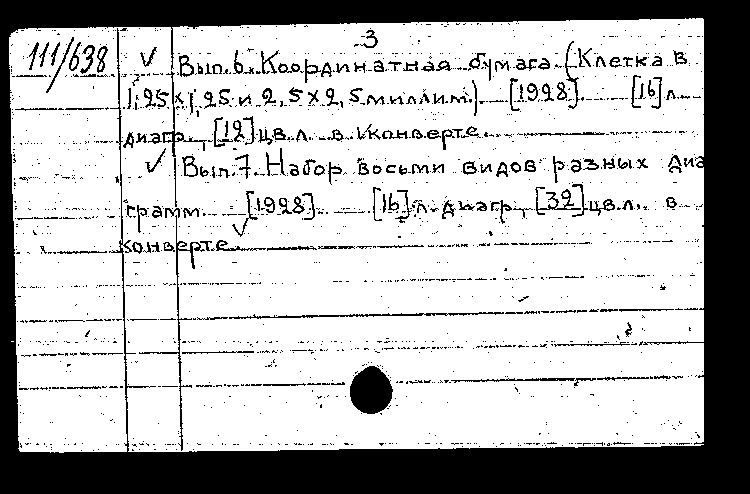 3
111/638 ✓ Вып. 6. Координатная бумага. (Клетка в
1,25 х 1,25 и 2,5 х 2,5 миллим.). [1928]. [16] л.
диагр., [12] цв. л. в конверте.
✓ Вып. 7. Набор восьми видов разных диа
грамм. [1928]. [16] л. диагр., [32] цв. л. в
конверте. ✓